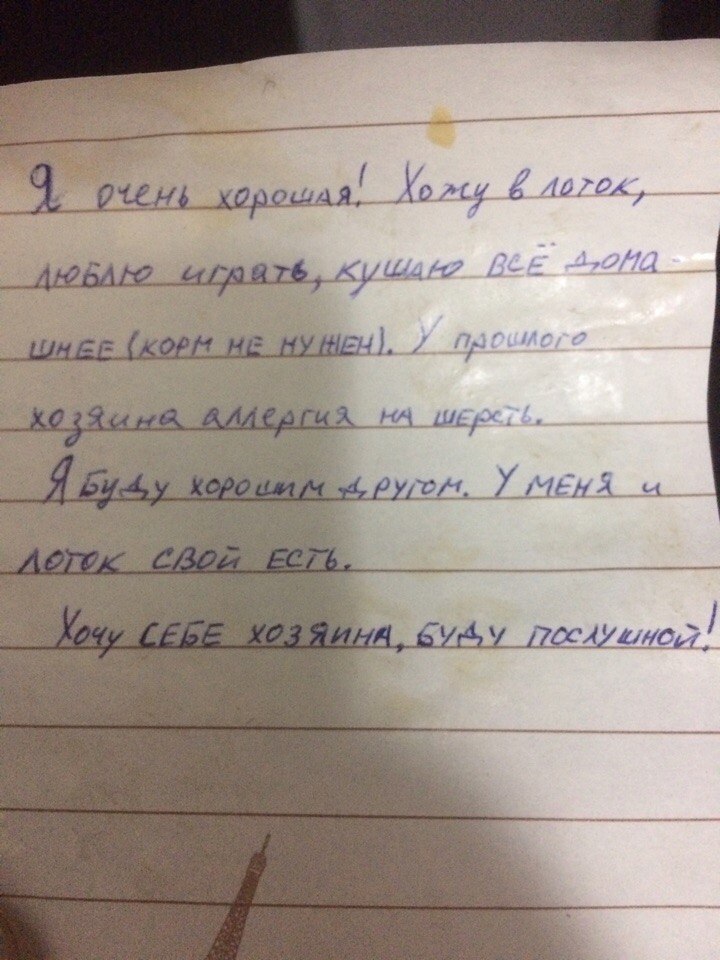 Я очень хорошая! Хожу в лоток,
люблю играть, кушаю всё дома-
шнее (корм не нужен). У прошлого
хозяина аллергия на шерсть.
Я буду хорошим другом. У меня и
лоток свой есть.
Хочу себе хозяина, буду послушной!